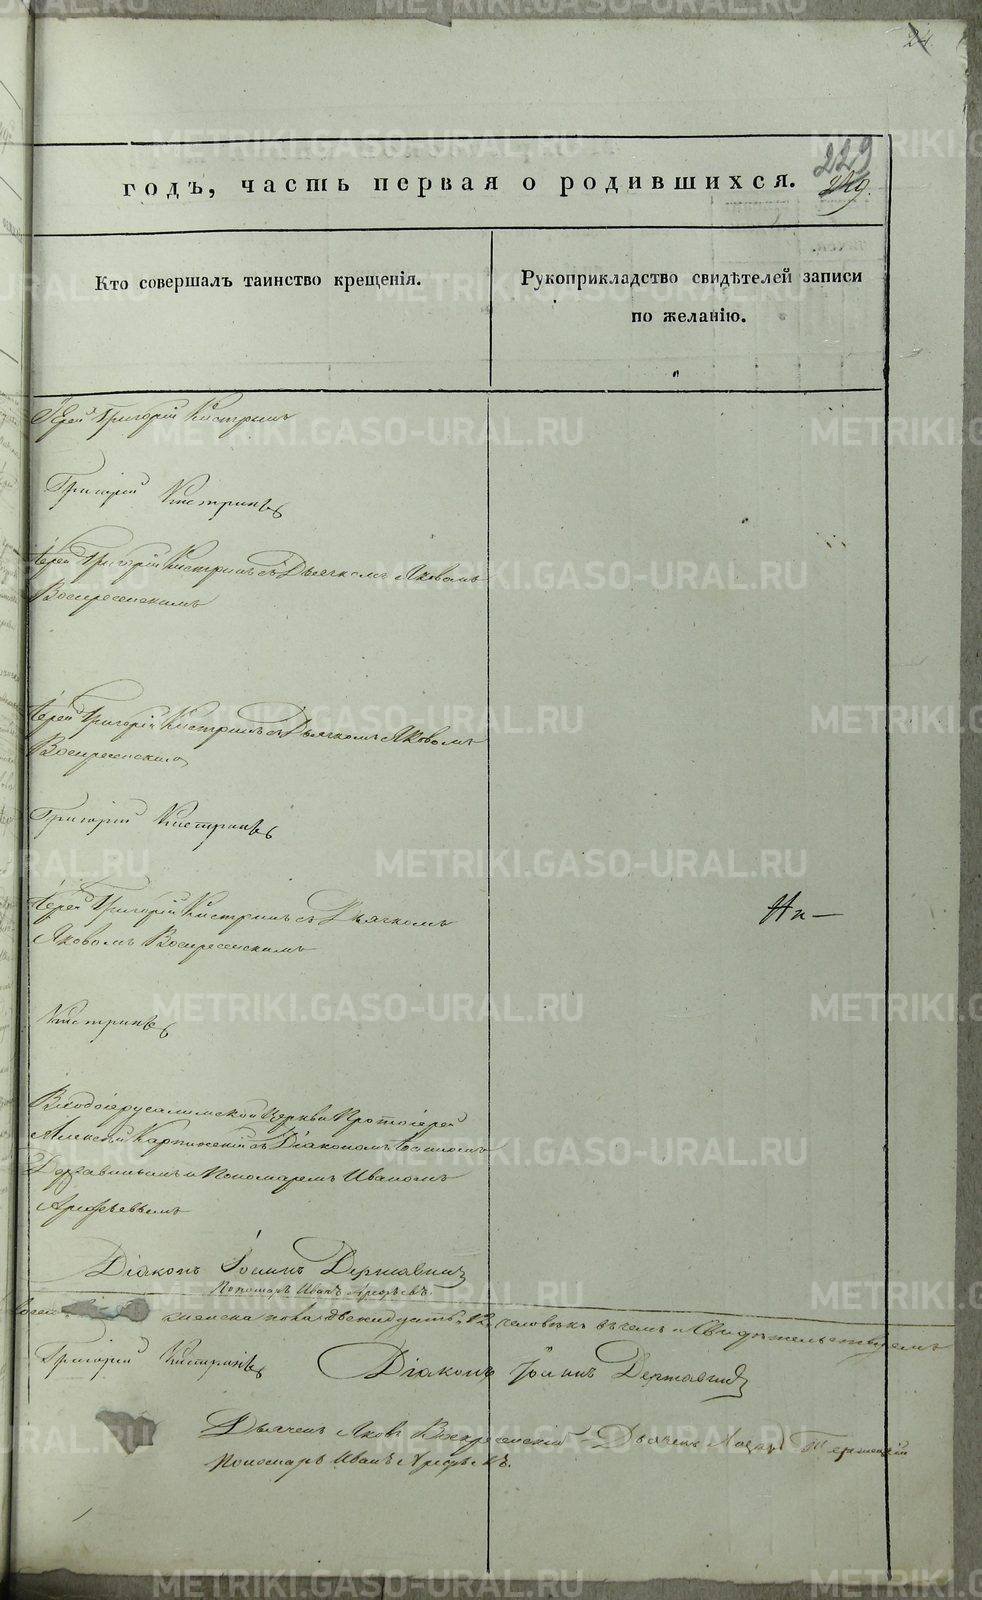 24
229
годъ, часть первая о родившихся.
Кто совершалъ таинство крещенія.
Рукоприкладство свидѣтелей записи
по желанію.
Іерей Григорій Кистринъ
Григорій Кистринъ
Іерей Григорій Кистринъ съ Дьячкомъ Яковомъ
Воскресенскимъ
Іерей Григорій Кистринъ съ Дьячкомъ Яковомъ
Воскресенскимъ
Григорій Кистринъ
Іерей Григорій Кистринъ съ Дьячкомъ
Яковомъ Воскресенскимъ
Кистринъ
Входоіерусалимской Церкви Протоіерей
Алексій Карпинскій съ Діакономъ Іоанномъ
Державинымъ и Пономаремъ Иваномъ
Арефьевымъ
Діаконъ Іоаннъ Державинъ
Пономарь Иванъ Арефьевъ.
человѣкъ въ чемъ и Свидѣтельствуемъ
Григорій Кистринъ Діаконъ Іоаннъ Державинъ
Дьячекъ Яковъ Воскресенскій Дьячекъ
Пономарь Иванъ Арефьевъ.
METRIKI.GASO-URAL.RU